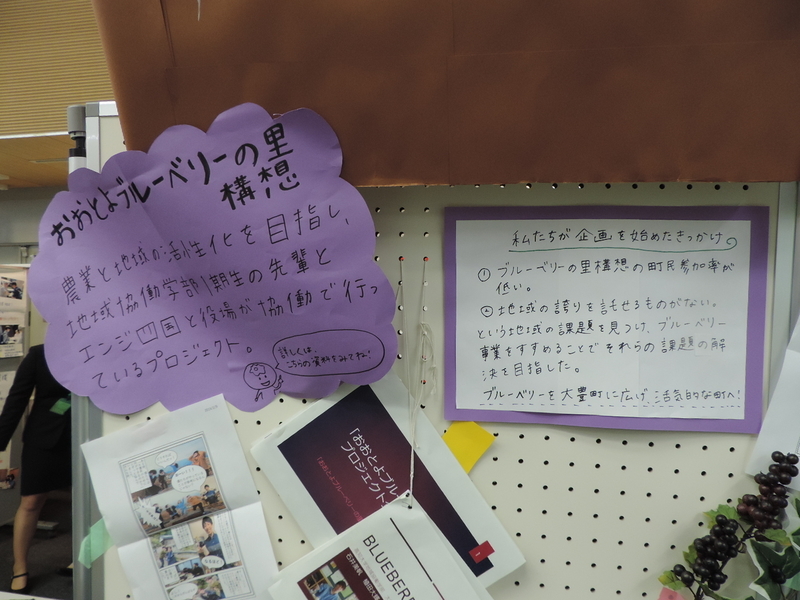 おおとよブルーベリーの里
構想
農業と地域が活性化を目指し、
地域協働学部1期生の先輩と
エンジン四国と役場が協働で行っ
ているプロジェクト。
詳しくは、
こちらの資料をみてね!
私たちが企画を始めたきっかけ
① ブルーベリーの里構想の町民参加率が
低い。
② 地域の誇りを託せるものがない。
という地域の課題を見つけ、ブルーベリー
事業をすすめることでそれらの課題の解
決を目指した。
ブルーベリーを大豊町に広げ、活気的な町へ!
「おおとよブル
プロジェクト
BLUEBER